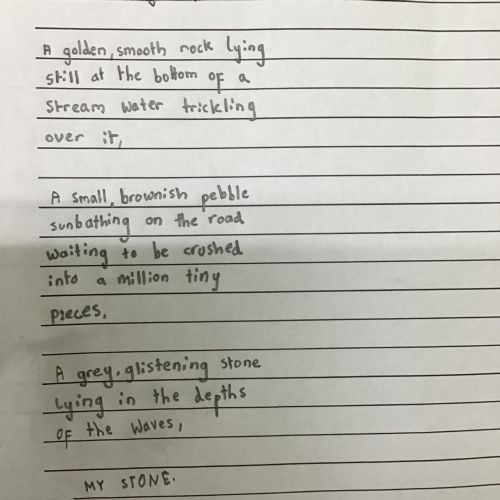 A golden, smooth rock lying
still at the bottom of a
stream water trickling
over it,
A small, brownish pebble
sunbathing on the road
waiting to be crushed
into a million tiny
pieces.
A grey, glistening stone
Lying in the depths
of the waves,
MY STONE.